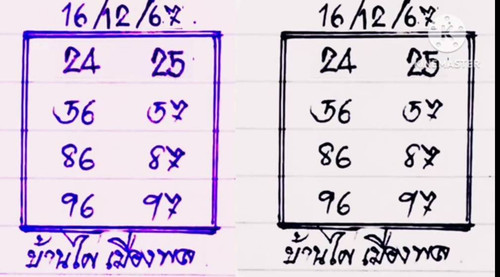 16/12/67
24 25
56 57
86 87
96 97
บ้านไผ่ เมืองพล
16/12/67
24 25
56 57
86 87
96 97
บ้านไผ่ เมืองพล